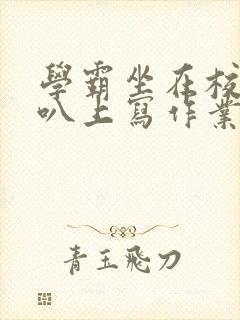 學霸坐在校
叭上寫作業
青玉飛刀